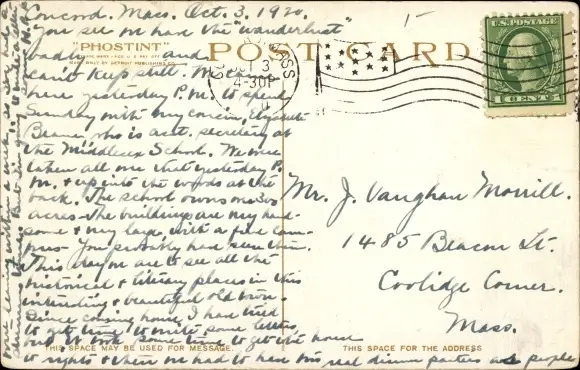 Concord. Mass. Oct. 3, 1920.
You see we have the "wanderlust"
badly and
"PHOSTINT"
MADE ONLY BY DETROIT PUBLISHING CO.
POST CARD
can't keep still. We came
here yesterday P.M. to spend
Sunday with my cousin, Elizabeth
who is asst. secretary at
the Middlesex School. We were
taken all over that yesterday P.
M. & up into the woods at the
back. The school owns
acres - the buildings are very hand-
some & very large, with a fine cam-
pus - You probably had seen them.
This day we are to see all the
historical & literary places in this
interesting & beautiful old town.
Since coming home, I have tried
to get time to write some letters,
but it took some time to get the house
to rights & then we had to have
real dinner parties and people
OCT 3
4-30P
MASS
U.S. POSTAGE
1 CENT 1
Mr. J. Vaughan Morrill.
1485 Beacon St.
Coolidge Corner.
Mass.
THIS SPACE MAY BE USED FOR MESSAGE.
THIS SPACE FOR THE ADDRESS